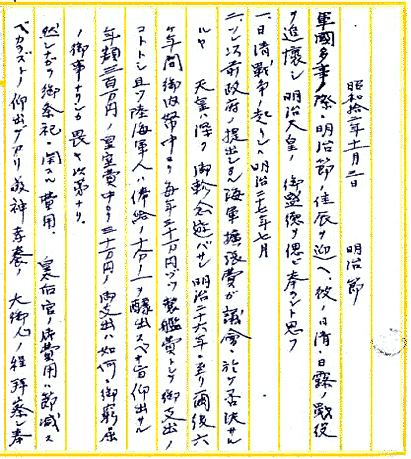 昭和拾二年十一月三日　明治節
軍國多事ノ際・明治節ノ佳辰ヲ迎ヘ、彼ノ日清・日露ノ戰役
ヲ追懐シ 明治大皇ノ御聖徳ヲ偲ビ奉ラント思フ
一、日清戰争ノ起リシハ明治二十七年七月
ニシテ以前政府ノ提出シタル海軍擴張費ガ議會ニ於テ否決サル
ルヤ 天皇ハ深ク御軫念遊バサレ 明治二十六年ニ至リ爾後六
ケ年間御内帑中ヨリ毎年三十万円ヅツ製艦費トシテ御支出ノ
コトトシ且ツ陸海軍人ハ俸給ノ十分ノ一ヲ醵出スベキ旨仰出サル
年額三百万円ノ皇室費中ヨリ三十万円ノ御支出ハ如何ニ御窮屈
ノ御事ナリシカ畏キ次第ナリ。
然レドモ御祭祀ニ関スル費用、皇太后宮ノ費用ハ節減ス
ベカラズトノ仰出ダアリ 敬神孝養ノ大御心ノ程拝察シ奉